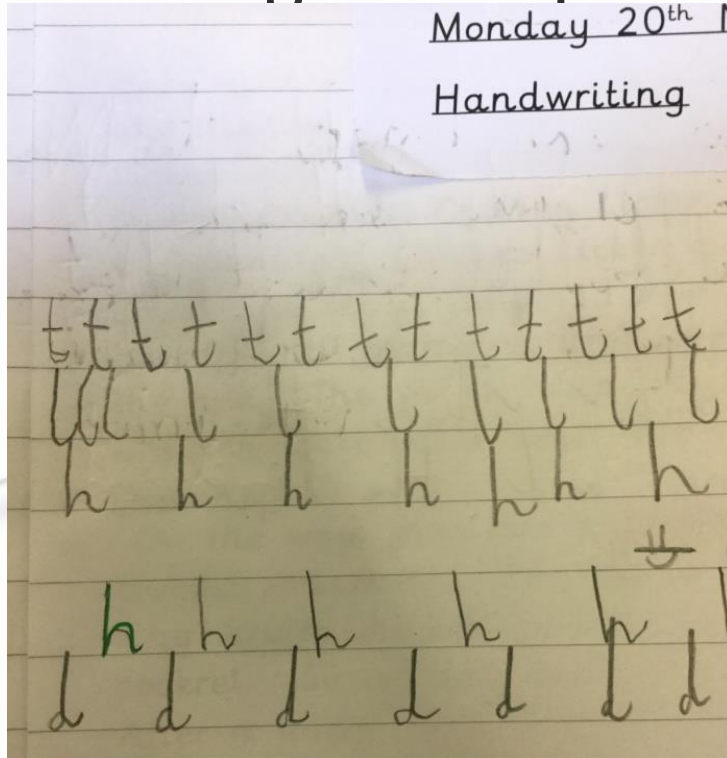 Monday 20th
Handwriting
t t t t t t t t t t t t t
l l l l l l l l l l
h h h h h h h
h h h h h
d d d d d d d